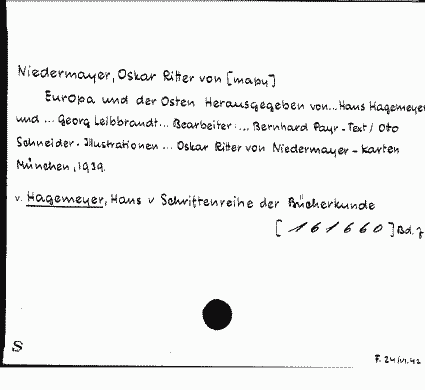 Niedermayer, Oskar Ritter von [mapy]
Europa und der Osten Herausgegeben von... Hans Hagemeyer
und ... Georg Leibbrandt... Bearbeiter:... Bernhard Payr - Text / Oto
Schneider - Illustrationen ... Oskar Ritter von Niedermayer - Karten
München, 1939.
v. Hagemeyer, Hans v Schriftenreihe der Bücherkunde
[161660] Bd. 7
S
F. 24/VI.42